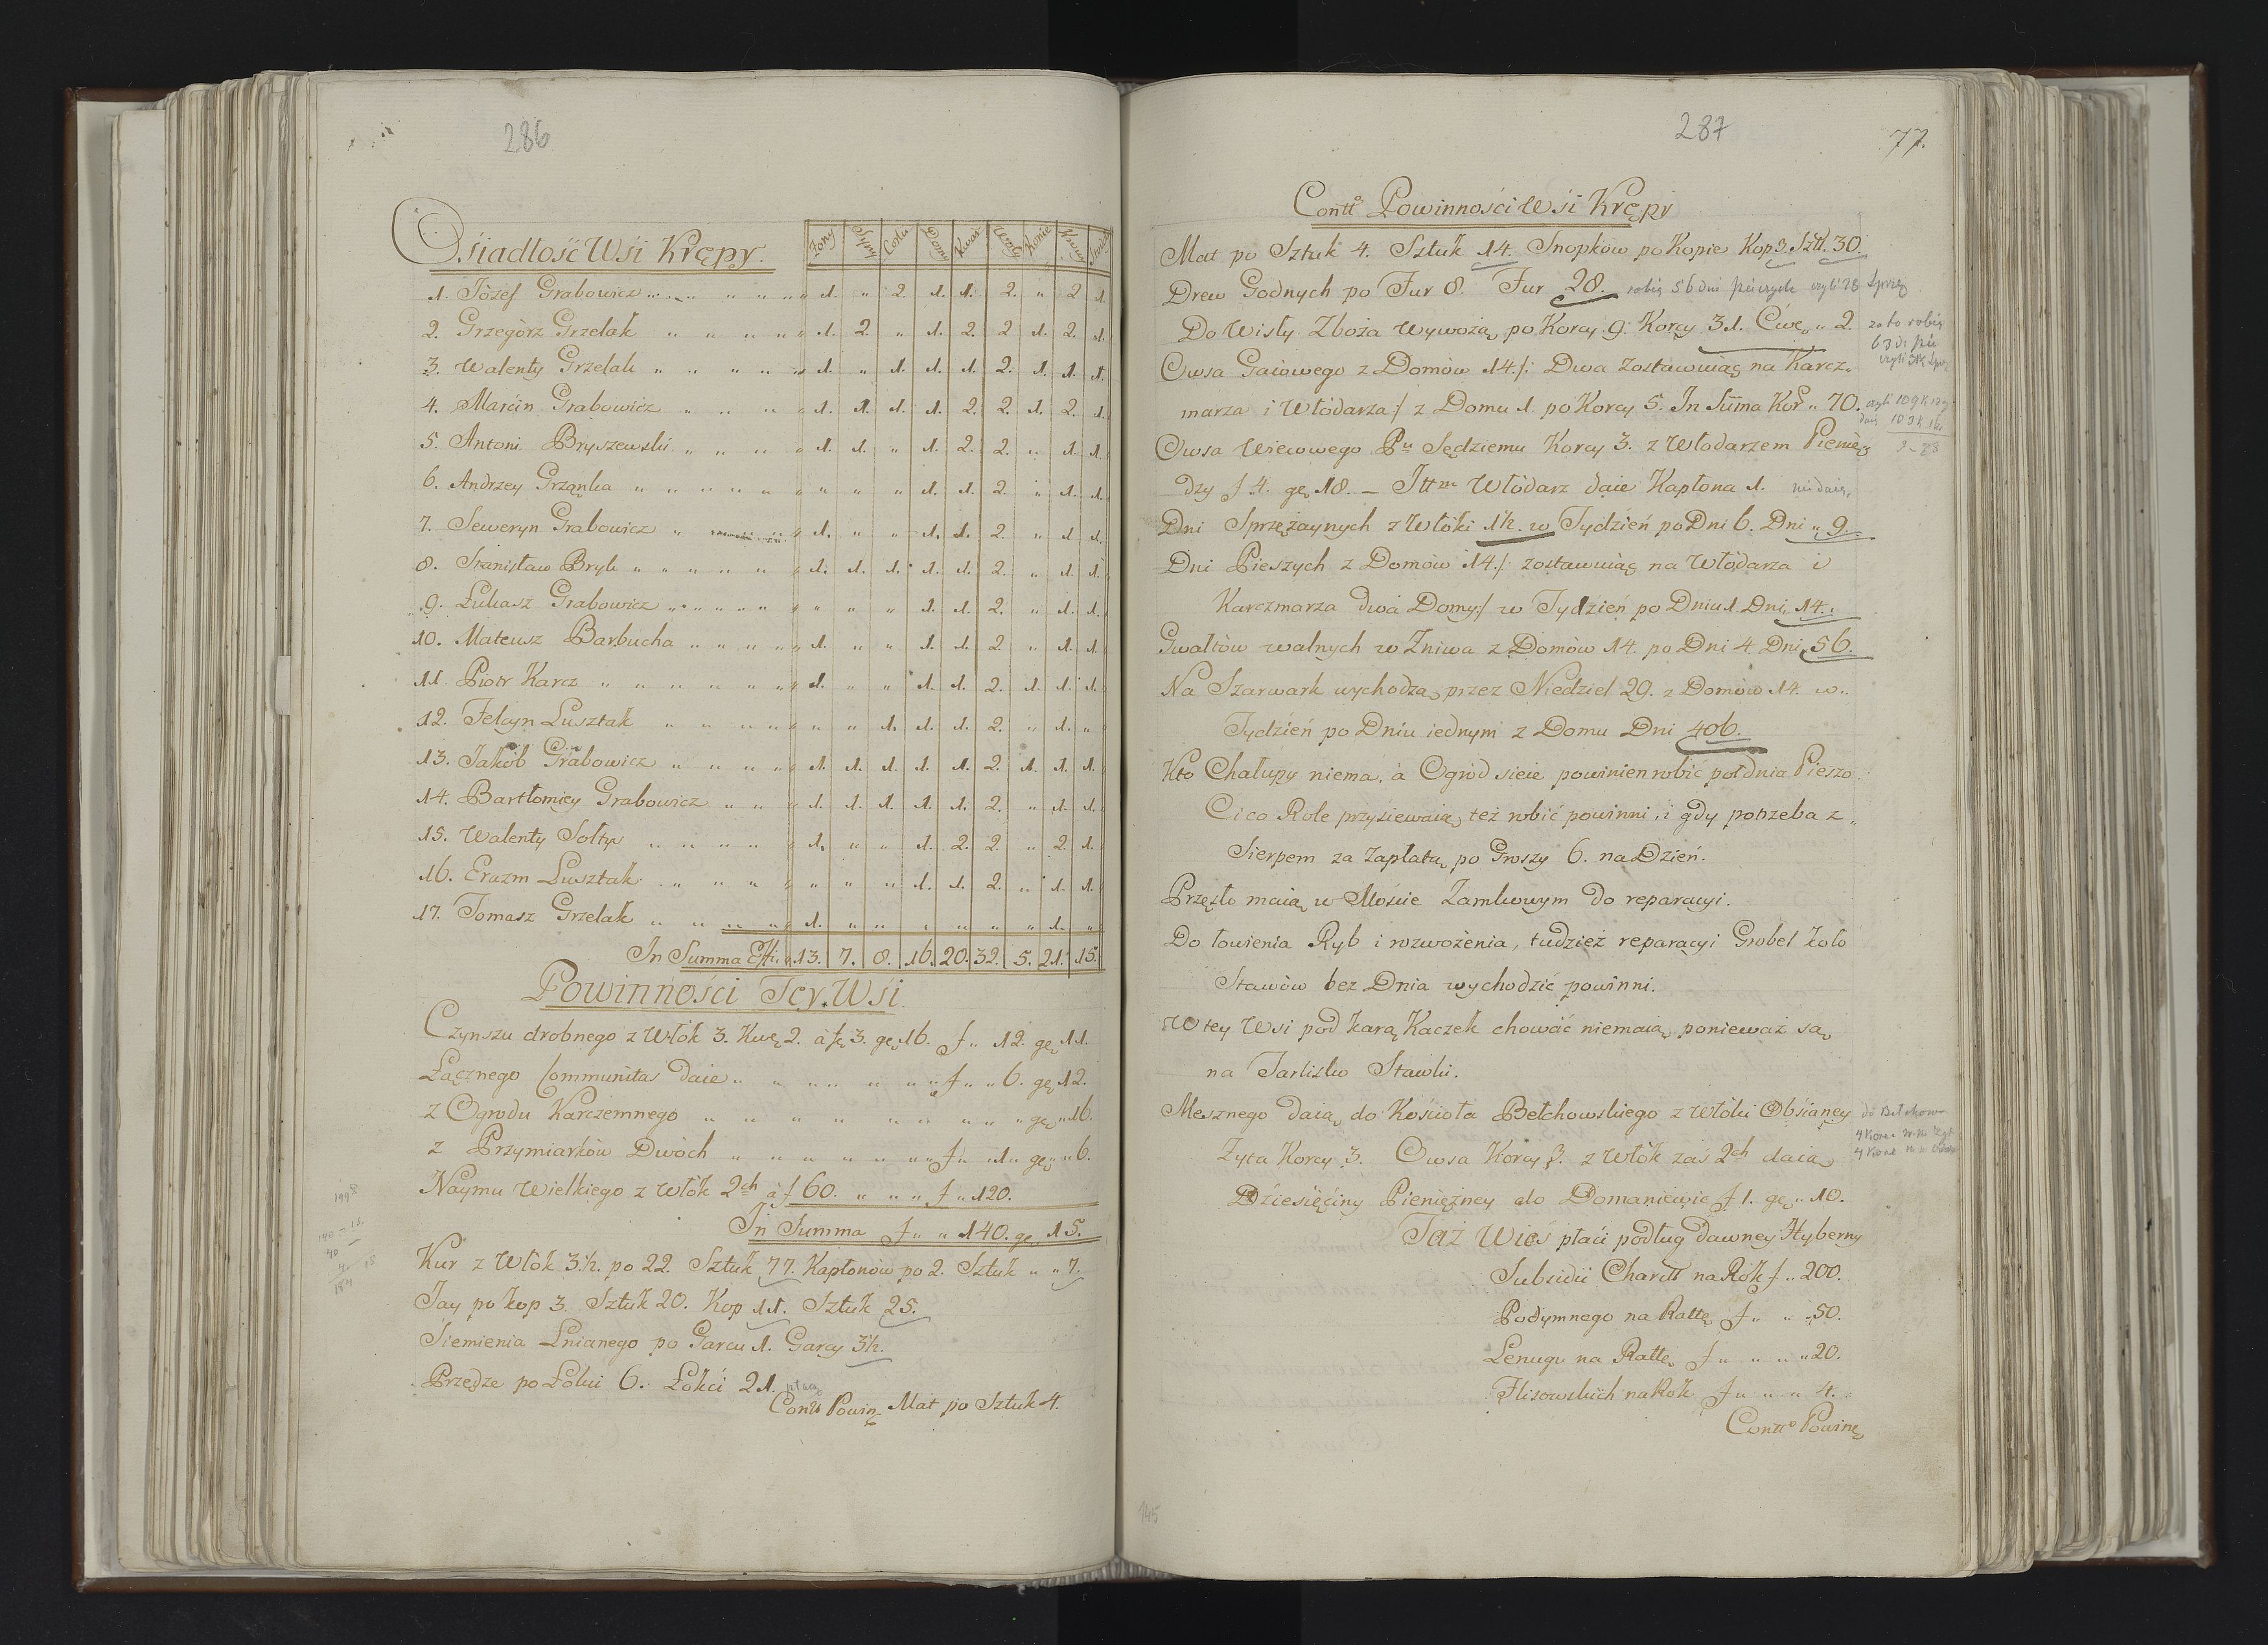 286
Osiadłość Wsi Krępy. Żony Syny Corki Domy Kwar Woły Konie Krowy
1. Jòzef Grabowicz „ „ „ „ „ 1. „ 2. 1. 1. 2. „ 2 1.
2. Grzegòrz Grzelak „ „ „ „ „ 1. 2. „ 1. 2. 2 1. 2. 1.
3. Walenty Grzelak „ „ „ „ „ 1. „ 1. 1. 1. 2. 1. 1. 1.
4. Marcin Grabowicz „ „ „ „ 1. 1. 1. 1. 2. 2. 1. 2. 1.
5. Antoni Bryszewski „ „ „ „ 1. 1. „ 1. 2. 2. „ 1. 1.
6. Andrzey Grząnka „ „ „ „ „ „ „ „ 1. 1. 2. „ 1. 1.
7. Seweryn Grabowicz „ „ 1. „ „ 1. 1. 2. „ 1. 1.
8. Stanisław Bryk „ „ „ „ „ 1. 1. 1. 1. 1. 2. „ 1. 1.
9. Łukasz Grabowicz „ „ „ „ „ „ „ „ 1. 1. 2. „ 1. 1.
10. Mateusz Barbucha „ „ „ „ „ 1. „ „ 1. 1. 2 „ 1. 1.
11. Piotr Karcz „ „ „ „ „ „ 1. „ „ 1. 1. 2. 1. 1. 1.
12. Felcyn Lusztak „ „ „ „ „ „ „ 1. 1. 1. 2. „ 1. „
13. Jakòb Grabowicz „ „ „ „ 1. 1. 1. 1. 1. 2. 1. 1. 1.
14. Bartłomiey Grabowicz „ „ „ 1. 1. 1. 1. 1. 2. „ 1. 1.
15. Walenty Sołtys „ „ „ „ „ 1. „ „ 1. 2. 2. „ 2. 1.
16. Erazm Lusztak „ „ „ „ „ „ „ 1. 1. 2. „ 1. 1.
17. Tomasz Grzelak „ „ „ „ „ 1. „ „ „ „ „ „ 1. „
In Summa 13. 7. 8. 16. 20. 32. 5. 21. 15.
Powinności Tey. Wsi
Czynszu drobnego z Włòk 3. Kwę 2. à fl 3. gę 16. f „ 12. gę 11.
Łącznego Communitas daie „ „ „ „ „ „ f „ „ 6. gę 12.
z Ogrodu Karczemnego „ „ „ „ „ „ „ „ gę „ 16.
z Przymiarkòw Dwòch „ „ „ „ „ „ „ f „ „ 1 „ gę „ 6.
Naymu Wielkiego z Włòk 2ch à f 60. „ „ „ f „ 120.
In Summa f „ „ 140. gę 15.
Kur z Włòk 3½. po 22. Sztuk 77. Kapłonòw po 2. Sztuk „ „ 7.
Jay po kop 3. Sztuk 20. Kop 11. Sztuk 25.
Siemienia Lnianego po Garcu 1. Garcy 3½.
Przędze po Łokci 6. Łokci 21.
Contt Powin Mat po Sztuk 4.
287
77.
Contto Powinności Wsi Krępy
Mat po Sztuk 4. Sztuk 14. Snopkòw po Kopie Kop 3. Szt. 30.
Drew Godnych po Fur 8. Fur 28. robią 56 dni pieszych czyli 28 sprzę
Do Wisły Zboża wywożą po Korcy 9. Korcy 31. Ćwę „ 2.
za to robią
63 d. pie
Owsa Gaiowego z Domòw 14 /: Dwa zostawuiąc na Karcz„
marza i Włòdarza :/ z Domu 1. po Korcy 5. In Sum̃a Kor „ 70.
Owsa Wiecowego Pu Sędziemu Korcy 3. z Włodarzem Pienię„
dzy f 4. gę 18. – Ittm Włòdarz daie Kapłona 1. nie daią.
Dni Sprzężaynych z Włòki 1½. w Tydzień po Dni 6. Dni „ 9.
Dni Pieszych z Domòw 14 /: zostawuiąc na Włòdarza i
Karczmarza dwa Domy :/ w Tydzień po Dniu 1. Dni 14.
Gwałtòw walnych w Żniwa z Domòw 14. po Dni 4. Dni 56.
Na Szarwark wychodzą przez Niedziel 29. z Domòw 14. w„
Tydzień po Dniu iednym z Domu Dni 406.
Kto Chałupy niema, à Ogròd sieie powinien robić pòł dnia Pieszo.
Ci co Role przysiewaią, też robić powinni, i gdy potrzeba z„
Sierpem za zapłatą po Groszy 6. na Dzień.
Przęsło maią w Moście Zamkowym do reparacyi.
Do łowienia Ryb i rozwożenia, tudzież reparacyi Grobel koło
Stawòw bez Dnia wychodzić powinni.
W tey Wsi pod karą Kaczek chować niemaią, ponieważ są
na Tarlisko Stawki.
Mesznego daią do Kościoła Bełchowskiego z Włòki Obsianey
Żyta Korcy 3. Owsa Korcy 3. z Włòk zaś 2ch daią
Dziesięciny Pieniężney do Domaniewic f 1. gę „ 10.
Taż Wieś płaci podług dawney Hyberny
Subsidii Charitt na Rok f „ 200.
Podymnego na Rattę f „ „ 50.
Lenugu na Rattę f „ „ „ 20.
Flisowskich na Rok f „ „ „ 4.
Contto Powinę
145